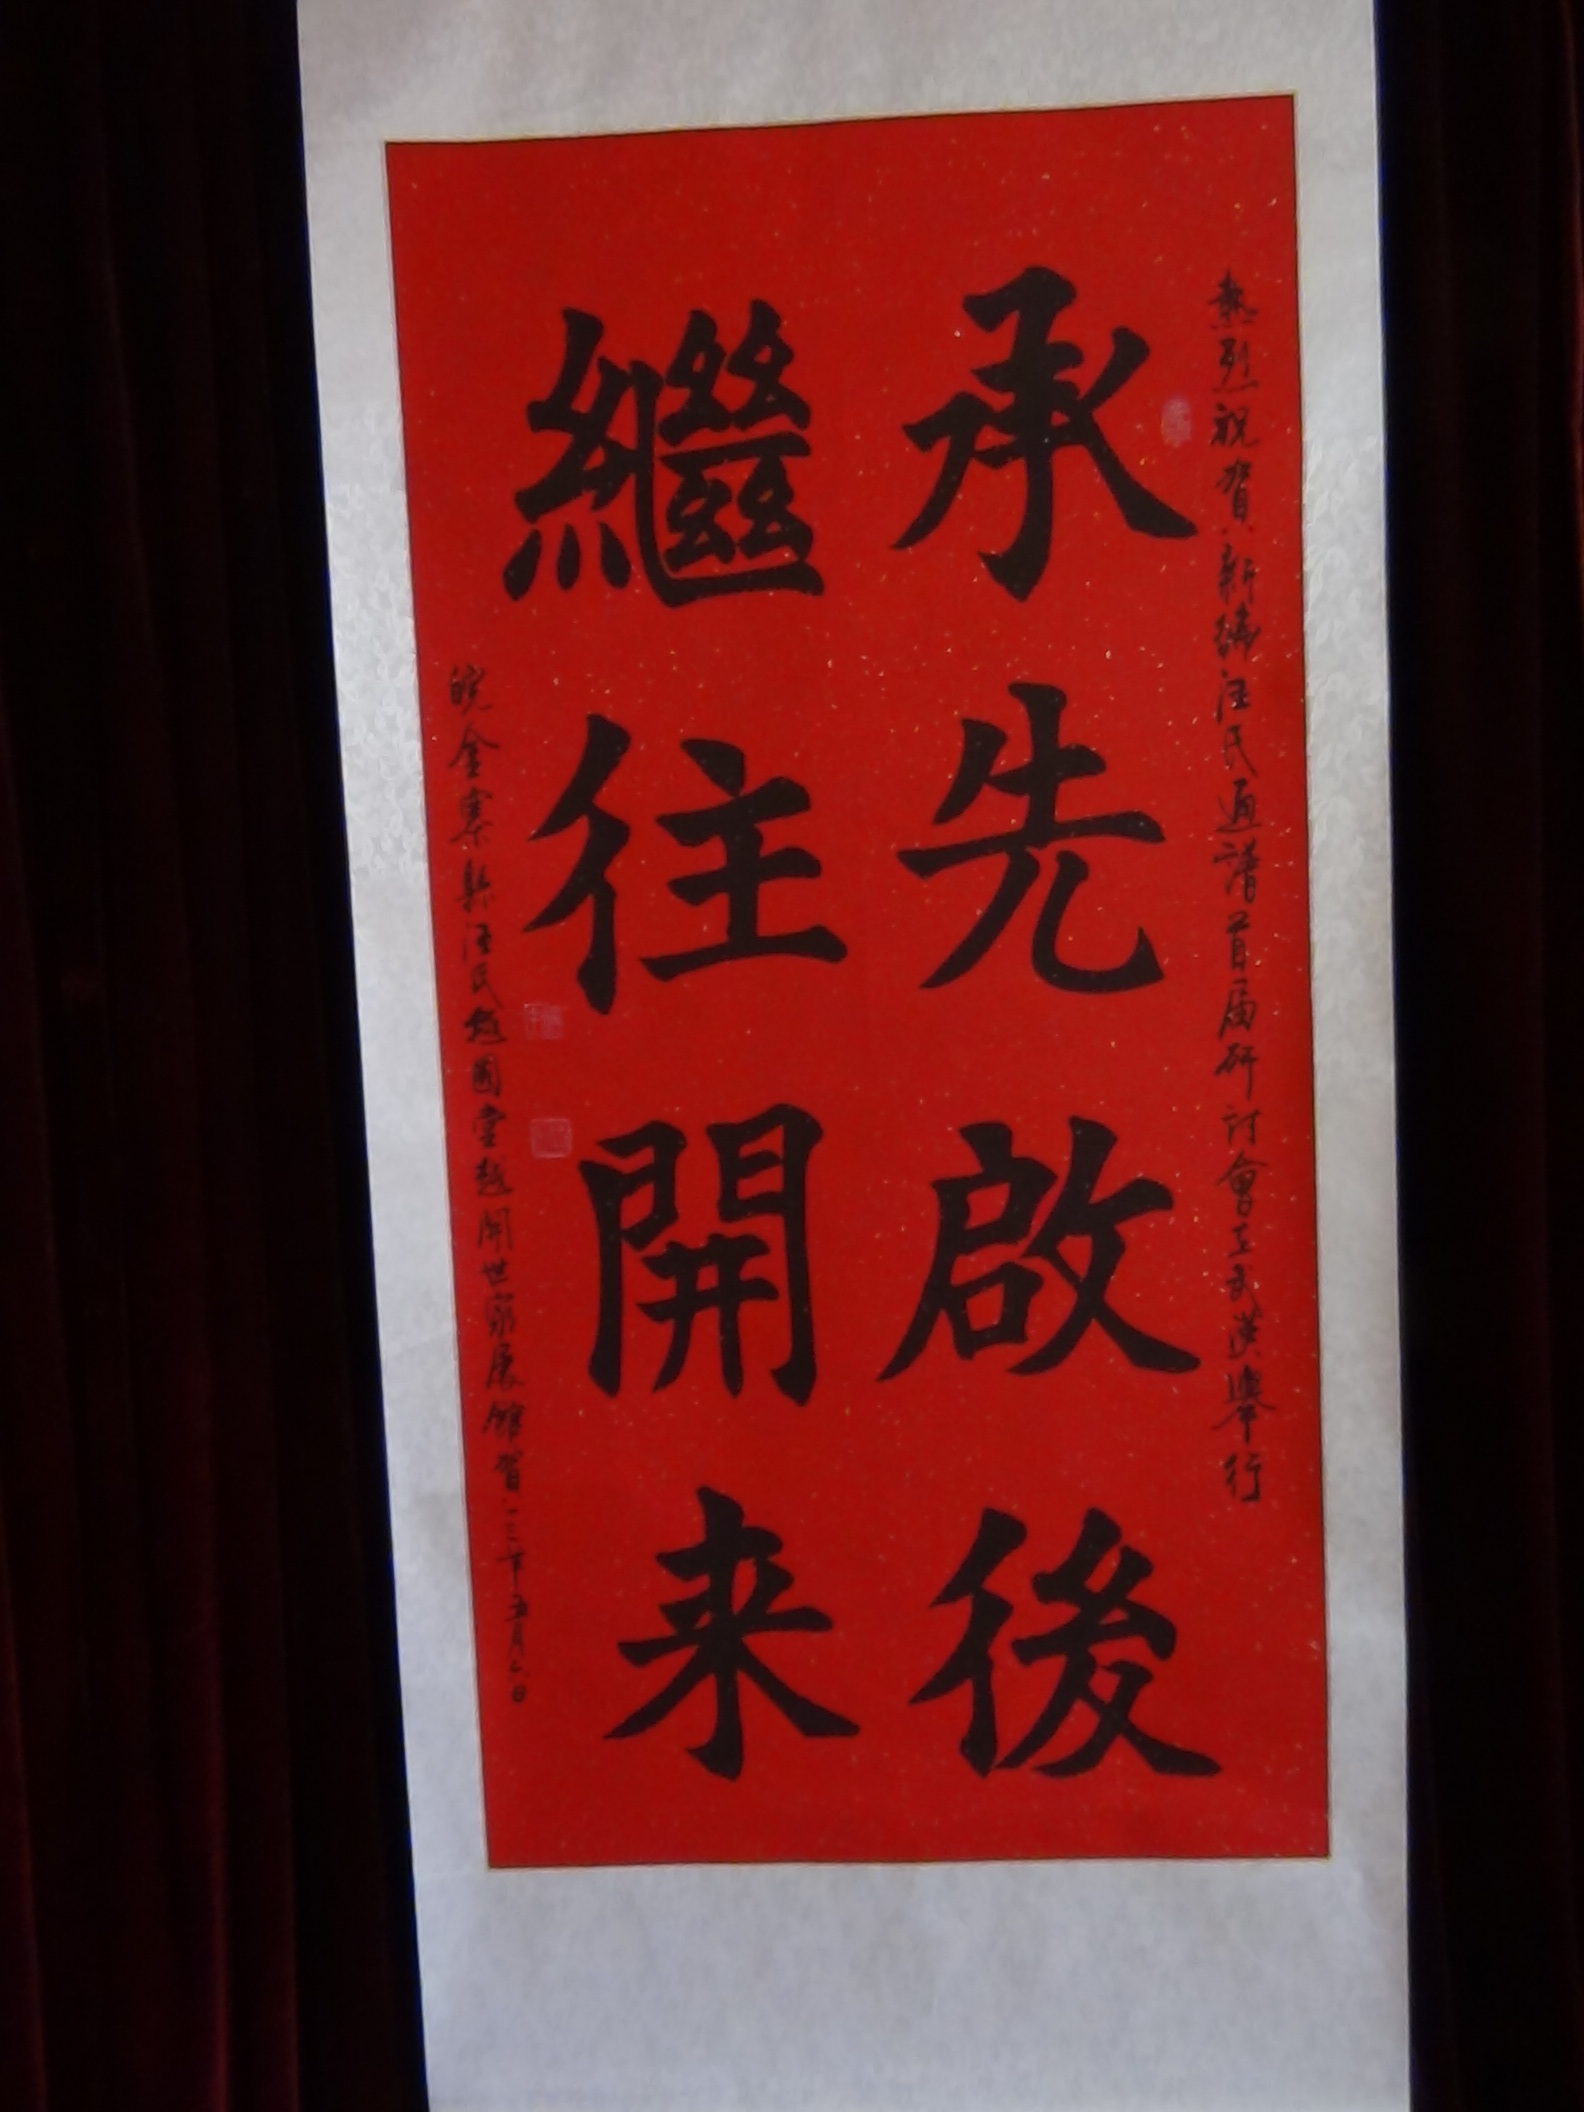 熱烈祝賀新編汪氏通譜首届研討會在武漢舉行
承先啟後
繼往開来
皖金寨縣汪氏越國堂越開世家展館賀二〇一三年五月六日